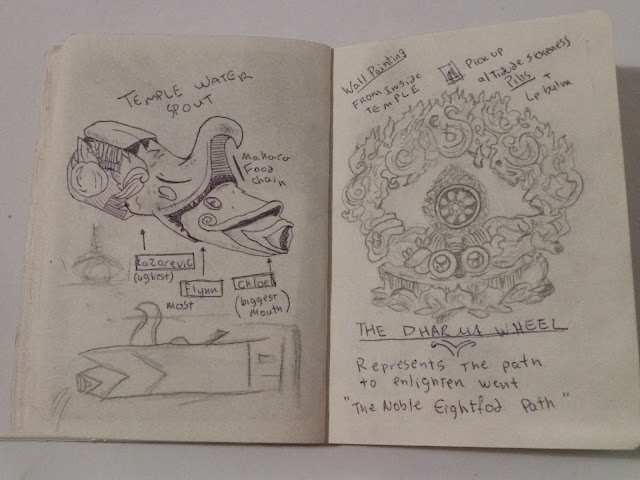 TEMPLE WATER
SPOUT
Makara
Food
chain
Lazarevic
(ugliest)
Flynn
most
Chloe
(biggest
mouth)
Wall Painting
From Inside
TEMPLE
Pick up
altitude sickness
Pills
+
Lip balm
THE DHARMA WHEEL
Represents the path
to enlighten went
"The Noble Eightfod Path"